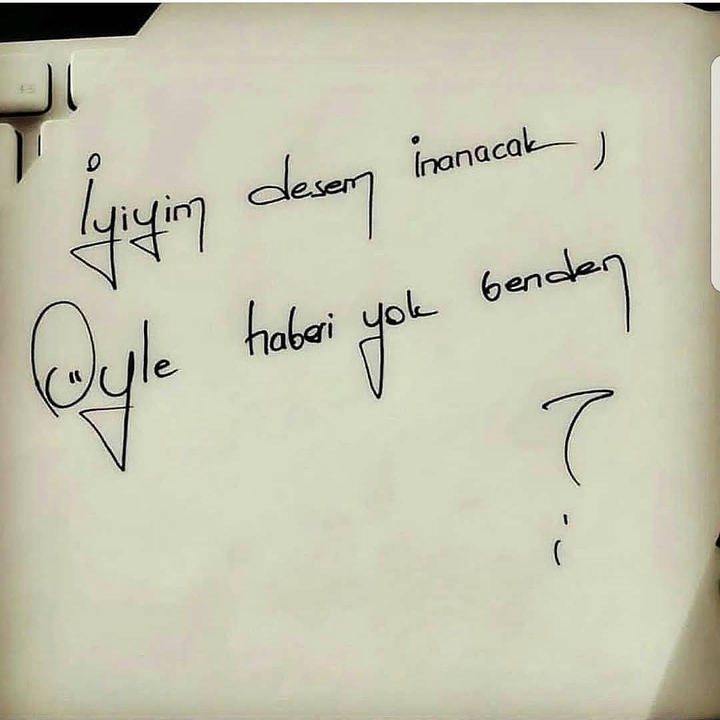 İyiyim desem inanacak,
Öyle haberi yok benden
?